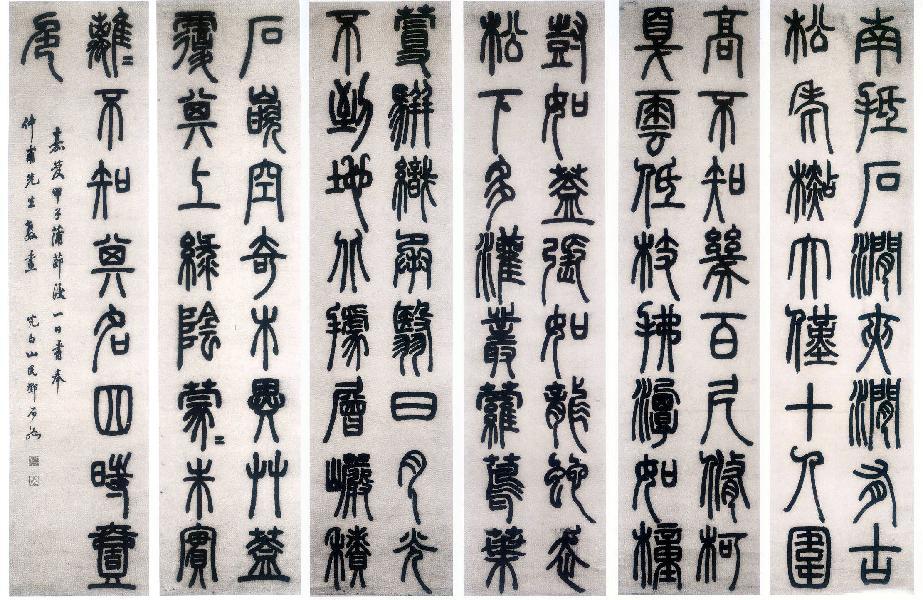 南抵石澗夾澗有古
松老樧大僅十人圍
高不知幾百尺修柯
戛雲低枝拂潭如橦
豎如蓋張如龍蛇走
松下多灌叢蘿蔦葉
蔓駢織承翳日月光
不到地北據層巖積
石嵌空奇木異艸蓋
覆其上綠陰蒙〻朱實
離〻不知其名四時壹
色
嘉慶甲子蒲節後一日書奉
仲甫先生教畫 完白山民鄧石如